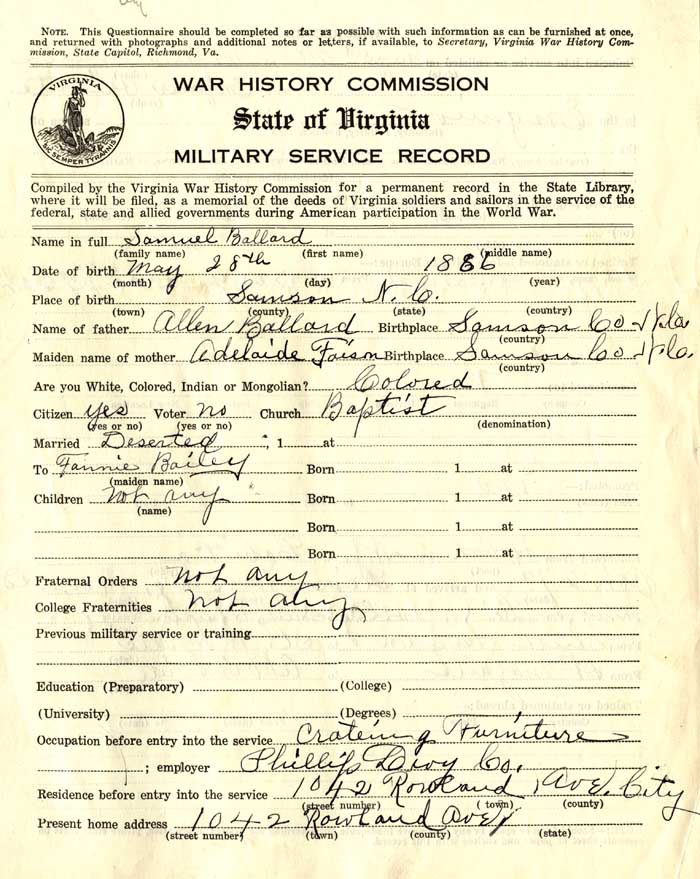 NOTE. This Questionnaire should be completed so far as possible with such information as can be furnished at once,
and returned with photographs and additional notes or letters, if available, to Secretary, Virginia War History Com-
mission, State Capitol, Richmond, Va.
VIRGINIA
SIC SEMPER TYRANNIS
WAR HISTORY COMMISSION
State of Virginia
MILITARY SERVICE RECORD
Compiled by the Virginia War History Commission for a permanent record in the State Library,
where it will be filed, as a memorial of the deeds of Virginia soldiers and sailors in the service of the
federal, state and allied governments during American participation in the World War.
Name in full Samuel Ballard
(family name) (first name) (middle name)
Date of birth May 28th 1886
(month) (day) (year)
Place of birth Samson N. C.
(town) (county) (state) (country)
Name of father Allen Ballard Birthplace Samson Co
(country)
Maiden name of mother Adelaide Faison Birthplace Samson Co
(country)
Are you White, Colored, Indian or Mongolian? Colored
Citizen yes Voter no Church Baptist
(yes or no) (yes or no) (denomination)
Married Deserted , 1 at
To Fannie Bailey Born 1 at
(maiden name)
Children not any Born 1 at
(name)
Born 1 at
Born 1 at
Fraternal Orders not any
College Fraternities not any
Previous military service or training
Education (Preparatory) (College)
(University) (Degrees)
Occupation before entry into the service Crateing Furniture
; employer Phillip Co.
Residence before entry into the service 1042 Rowland Ave. City
(street number) (town) (county)
Present home address 1042 Rowland Ave
(street number) (town) (county) (state)